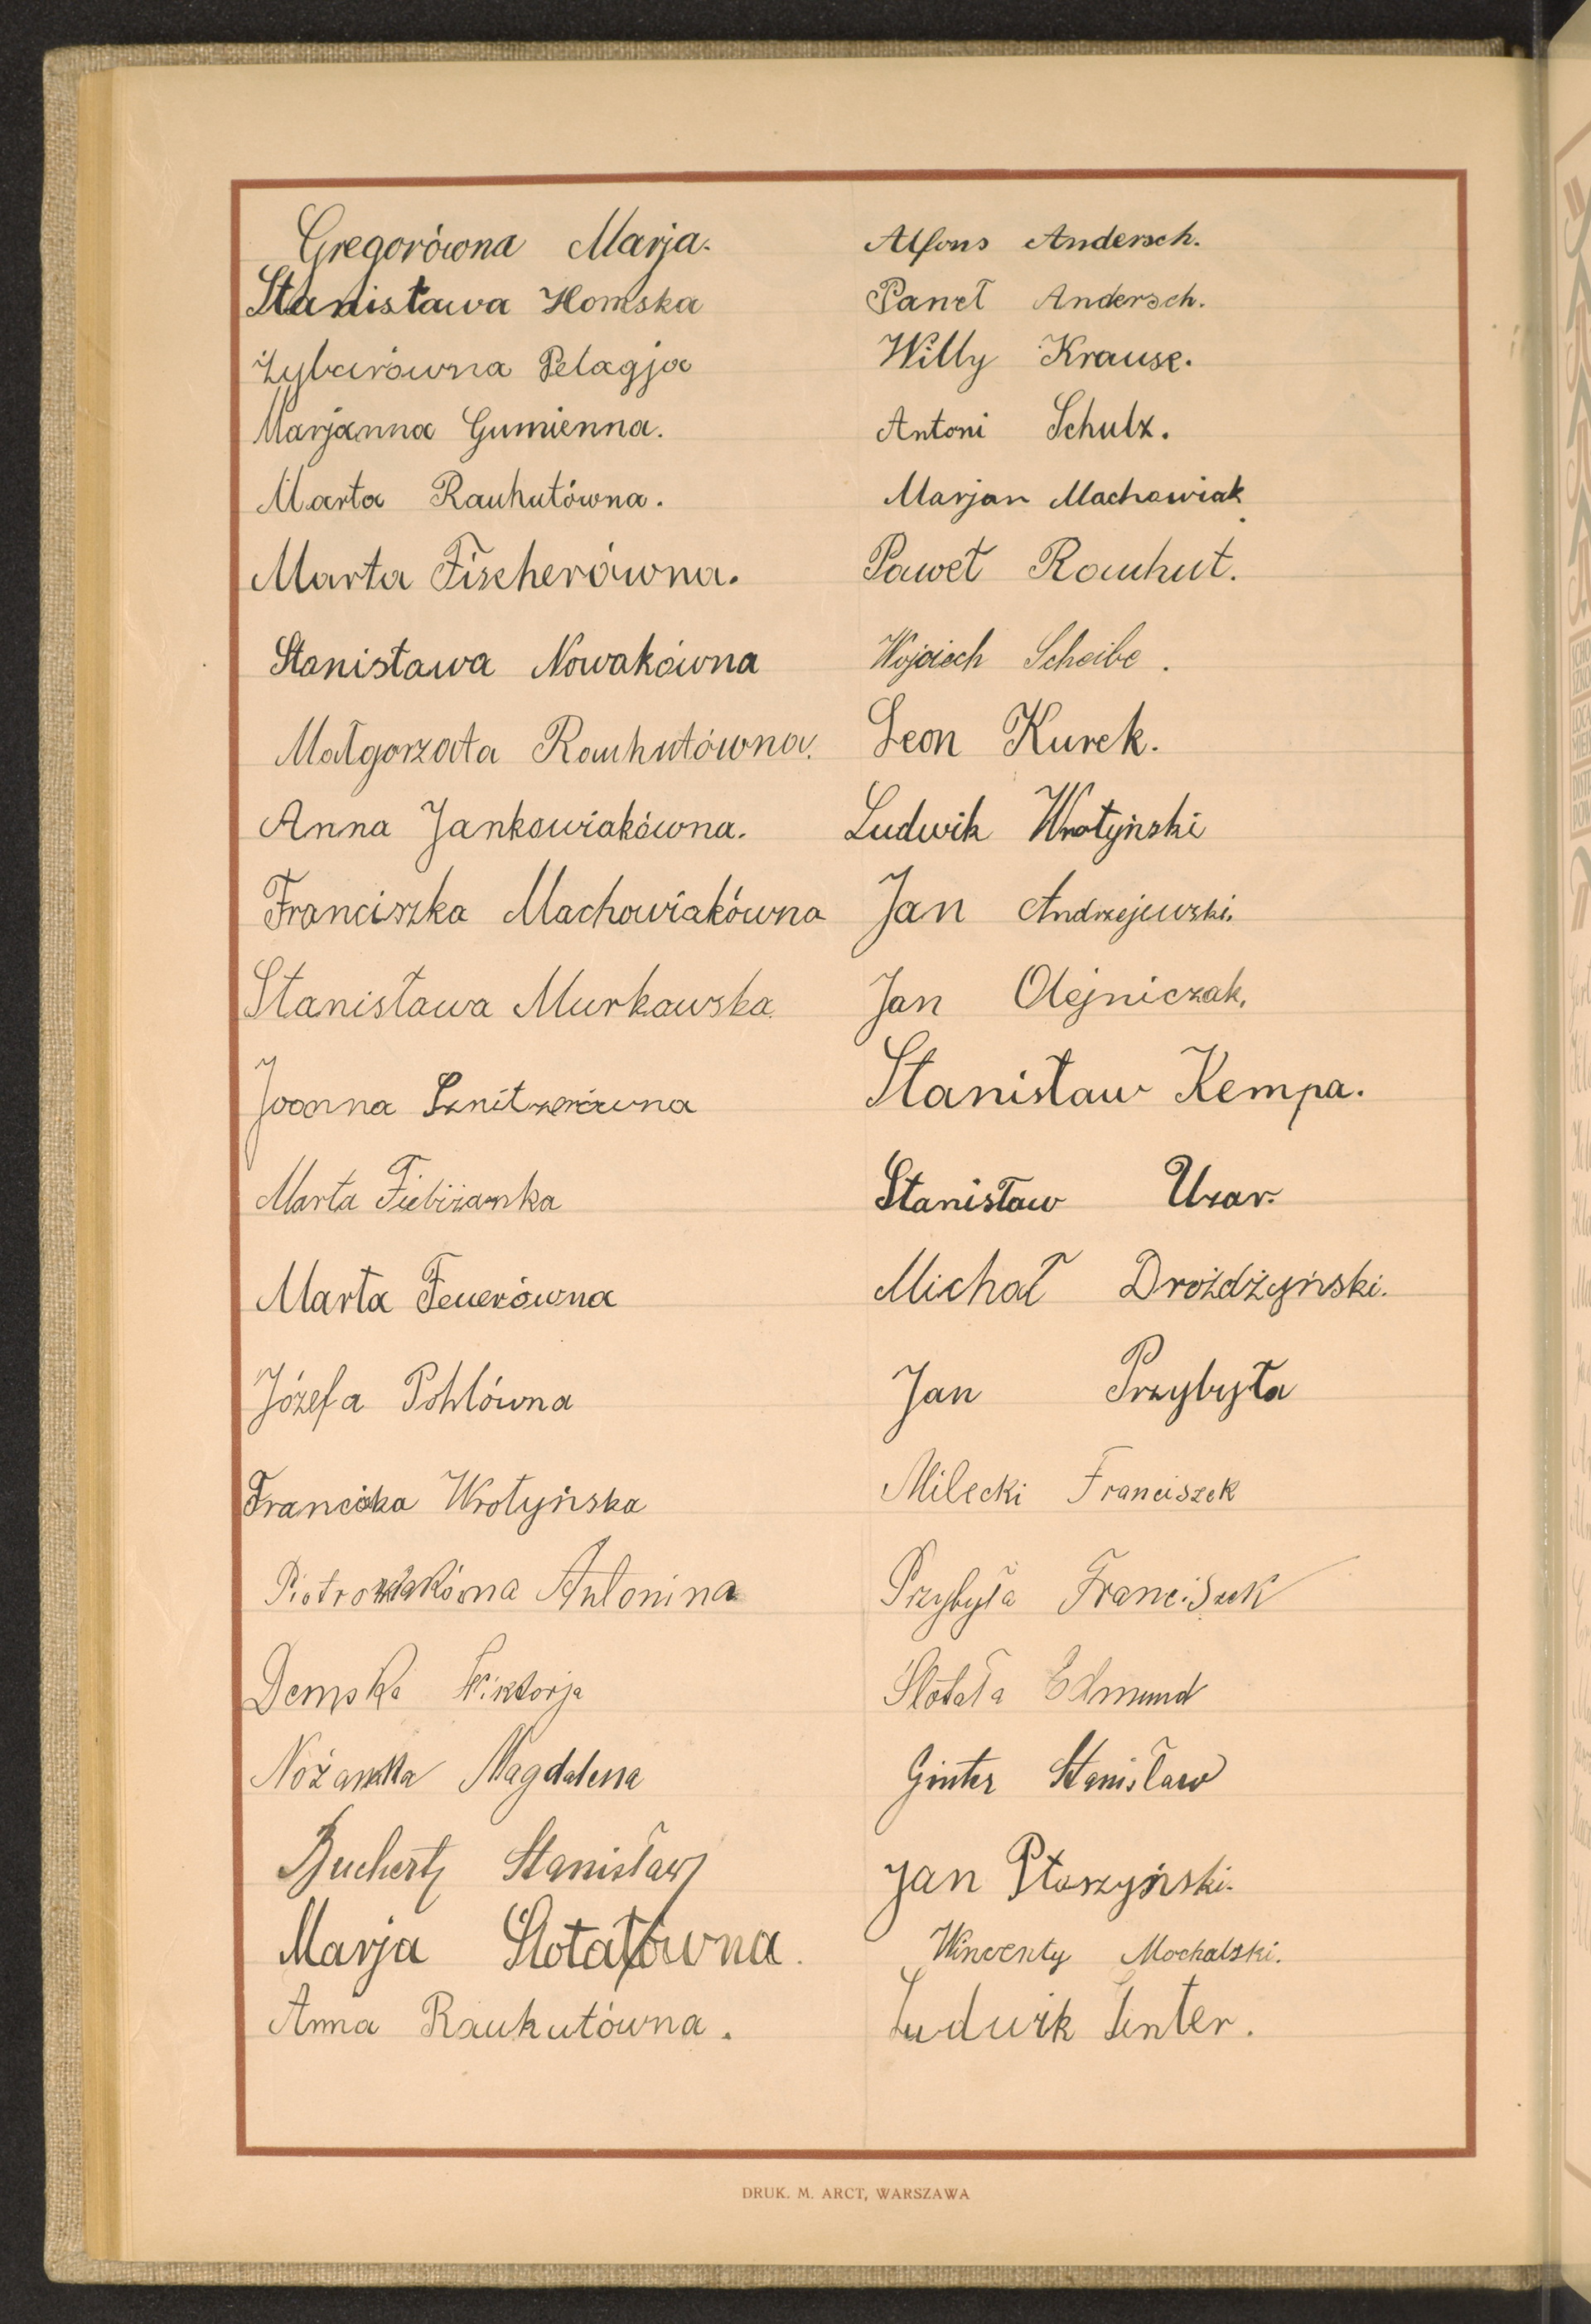 Gregorówna Marja.
Stanisława Homska
Żybarówna Pelagja
Marjanna Gumienna.
Marta Rauhutówna.
Marta Fischerówna.
Stanisława Nowakówna
Małgorzata Rauhutówna.
Anna Jankowiakówna.
Franciszka Machowiakówna
Stanisława Murkowska.
Joanna Sznitzerówna
Marta Fiebiżanka
Marta Feuerówna
Józefa Pohlówna
Franciszka Wrotyńska
Antonina
Demska Wiktorja
Nożanka Magdalena
Buchertz Stanisław
Marja Slotałówna.
Anna Rauhutówna.
Alfons Andersch.
Paneł Andersch.
Willy Krause.
Antoni Schulz.
Marjan Machowiak.
Paweł Rauhut.
Wojciech Scheibe.
Leon Kurek.
Ludwik Wrotyński
Jan Andrzejewski.
Jan Olejniczak.
Stanisław Kempa.
Stanisław Uzar.
Michał Drożdżyński.
Jan Przybyła
Milecki Franciszek
Przybyła Franciszek
Slotała Edmund
Ginter Stanisław
Jan Ptaszyński.
Wincenty Mochalski.
Ludwik Ginter.
DRUK. M. ARCT, WARSZAWA